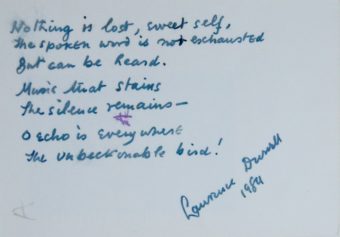 Nothing is lost, sweet self,
The spoken word is not exhausted
But can be heard.
Music that stains
The silence remains —
O echo is everywhere
The unbeckonable bird!
Lawrence Durrell
1984